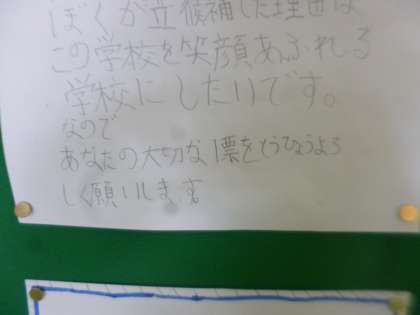 ぼくが立候補した理由は
この学校を笑顔あふれる
学校にしたいです。
なので
あなたの大切な1票をとうひょうよろ
しく願いします。